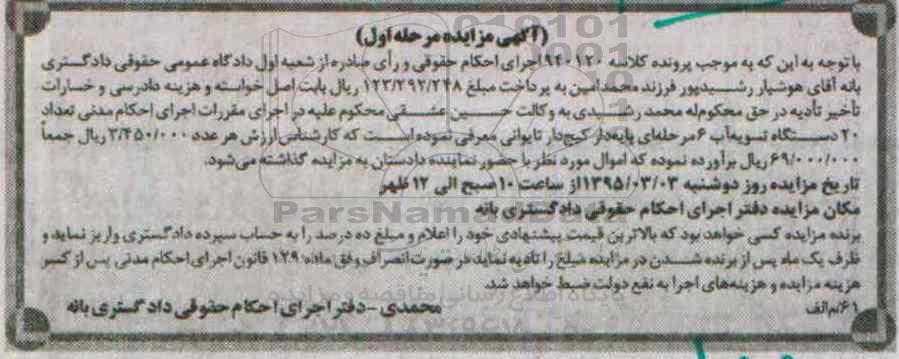 (آگهی مزایده مرحله اول)
با توجه به این که به موجب پرونده کلاسه ۹۴۰۱۲۰ اجرای احکام حقوقی و رأی صادره از شعبه اول دادگاه عمومی حقوقی دادگستری
بانه آقای هوشیار رشیدپور فرزند محمدامین به پرداخت مبلغ ۱۲۳/۲۹۲/۲۴۸ ریال بابت اصل خواسته و هزینه دادرسی و خسارات
تأخیر تأدیه در حق محکوم‌له محمد رشیدی به وکالت حسین عشقی محکوم علیه در اجرای مقررات اجرای احکام مدنی تعداد
۲۰ دستگاه تسویه‌آب ۶ مرحله‌ای پایه‌دار گیج‌دار تایوانی معرفی نموده است که کارشناس ارزش هر عدد ۳/۴۵۰/۰۰۰ ریال جمعاً
۶۹/۰۰۰/۰۰۰ ریال برآورده نموده که اموال مورد نظر با حضور نماینده دادستان به مزایده گذاشته می‌شود.
تاریخ مزایده روز دوشنبه ۱۳۹۵/۰۳/۰۳ از ساعت ۱۰ صبح الی ۱۲ ظهر
مکان مزایده دفتر اجرای احکام حقوقی دادگستری بانه
برنده مزایده کسی خواهد بود که بالاترین قیمت پیشنهادی خود را اعلام و مبلغ ده درصد را به حساب سپرده دادگستری واریز نماید و
ظرف یک ماه پس از برنده شدن در مزایده مبلغ را تادیه نماید در صورت انصراف وفق ماده ۱۲۹ قانون اجرای احکام مدنی پس از کسر
هزینه مزایده و هزینه‌های اجرا به نفع دولت ضبط خواهد شد.
۶۱/م‌الف
محمدی - دفتر اجرای احکام حقوقی دادگستری بانه
ParsNamadData